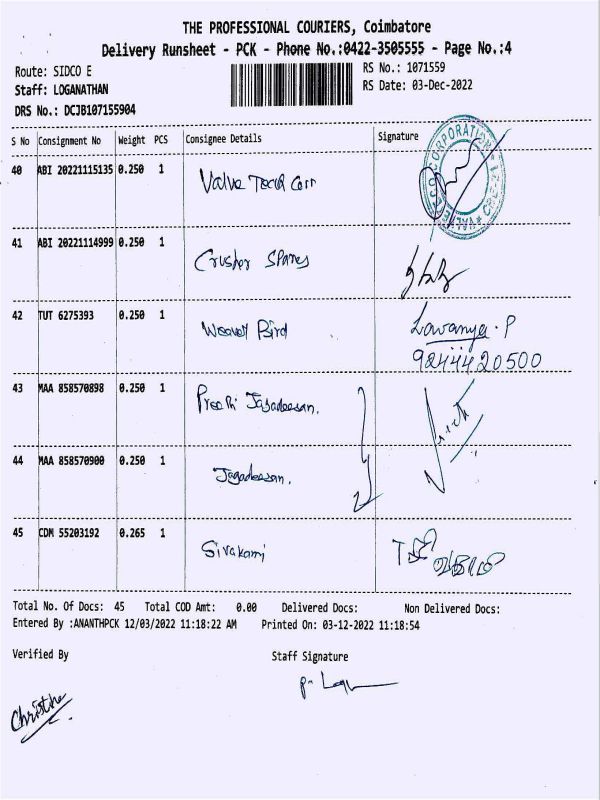 THE PROFESSIONAL COURIERS, Coimbatore
Delivery Runsheet - PCK - Phone No.:0422-3505555 - Page No.:4
Route: SIDCO E
RS No.: 1071559
Staff: LOGANATHAN
RS Date: 03-Dec-2022
DRS No.: DCJB107155904
S No Consignment No Weight PCS Consignee Details Signature
40 ABI 20221115135 0.250 1 Valve Tech Corr
41 ABI 20221114999 0.250 1 Crusher Spares
42 TUT 6275393 0.250 1 Weaver Bird Lavanya. P
9244420500
43 MAA 858570898 0.250 1 Preethi Jagadeesan.
44 MAA 858570900 0.250 1 Jagadeesan.
45 CDM 55203192 0.265 1 Sivakami
Total No. Of Docs: 45 Total COD Amt: 0.00 Delivered Docs: Non Delivered Docs:
Entered By :ANANTHPCK 12/03/2022 11:18:22 AM Printed On: 03-12-2022 11:18:54
Verified By Staff Signature